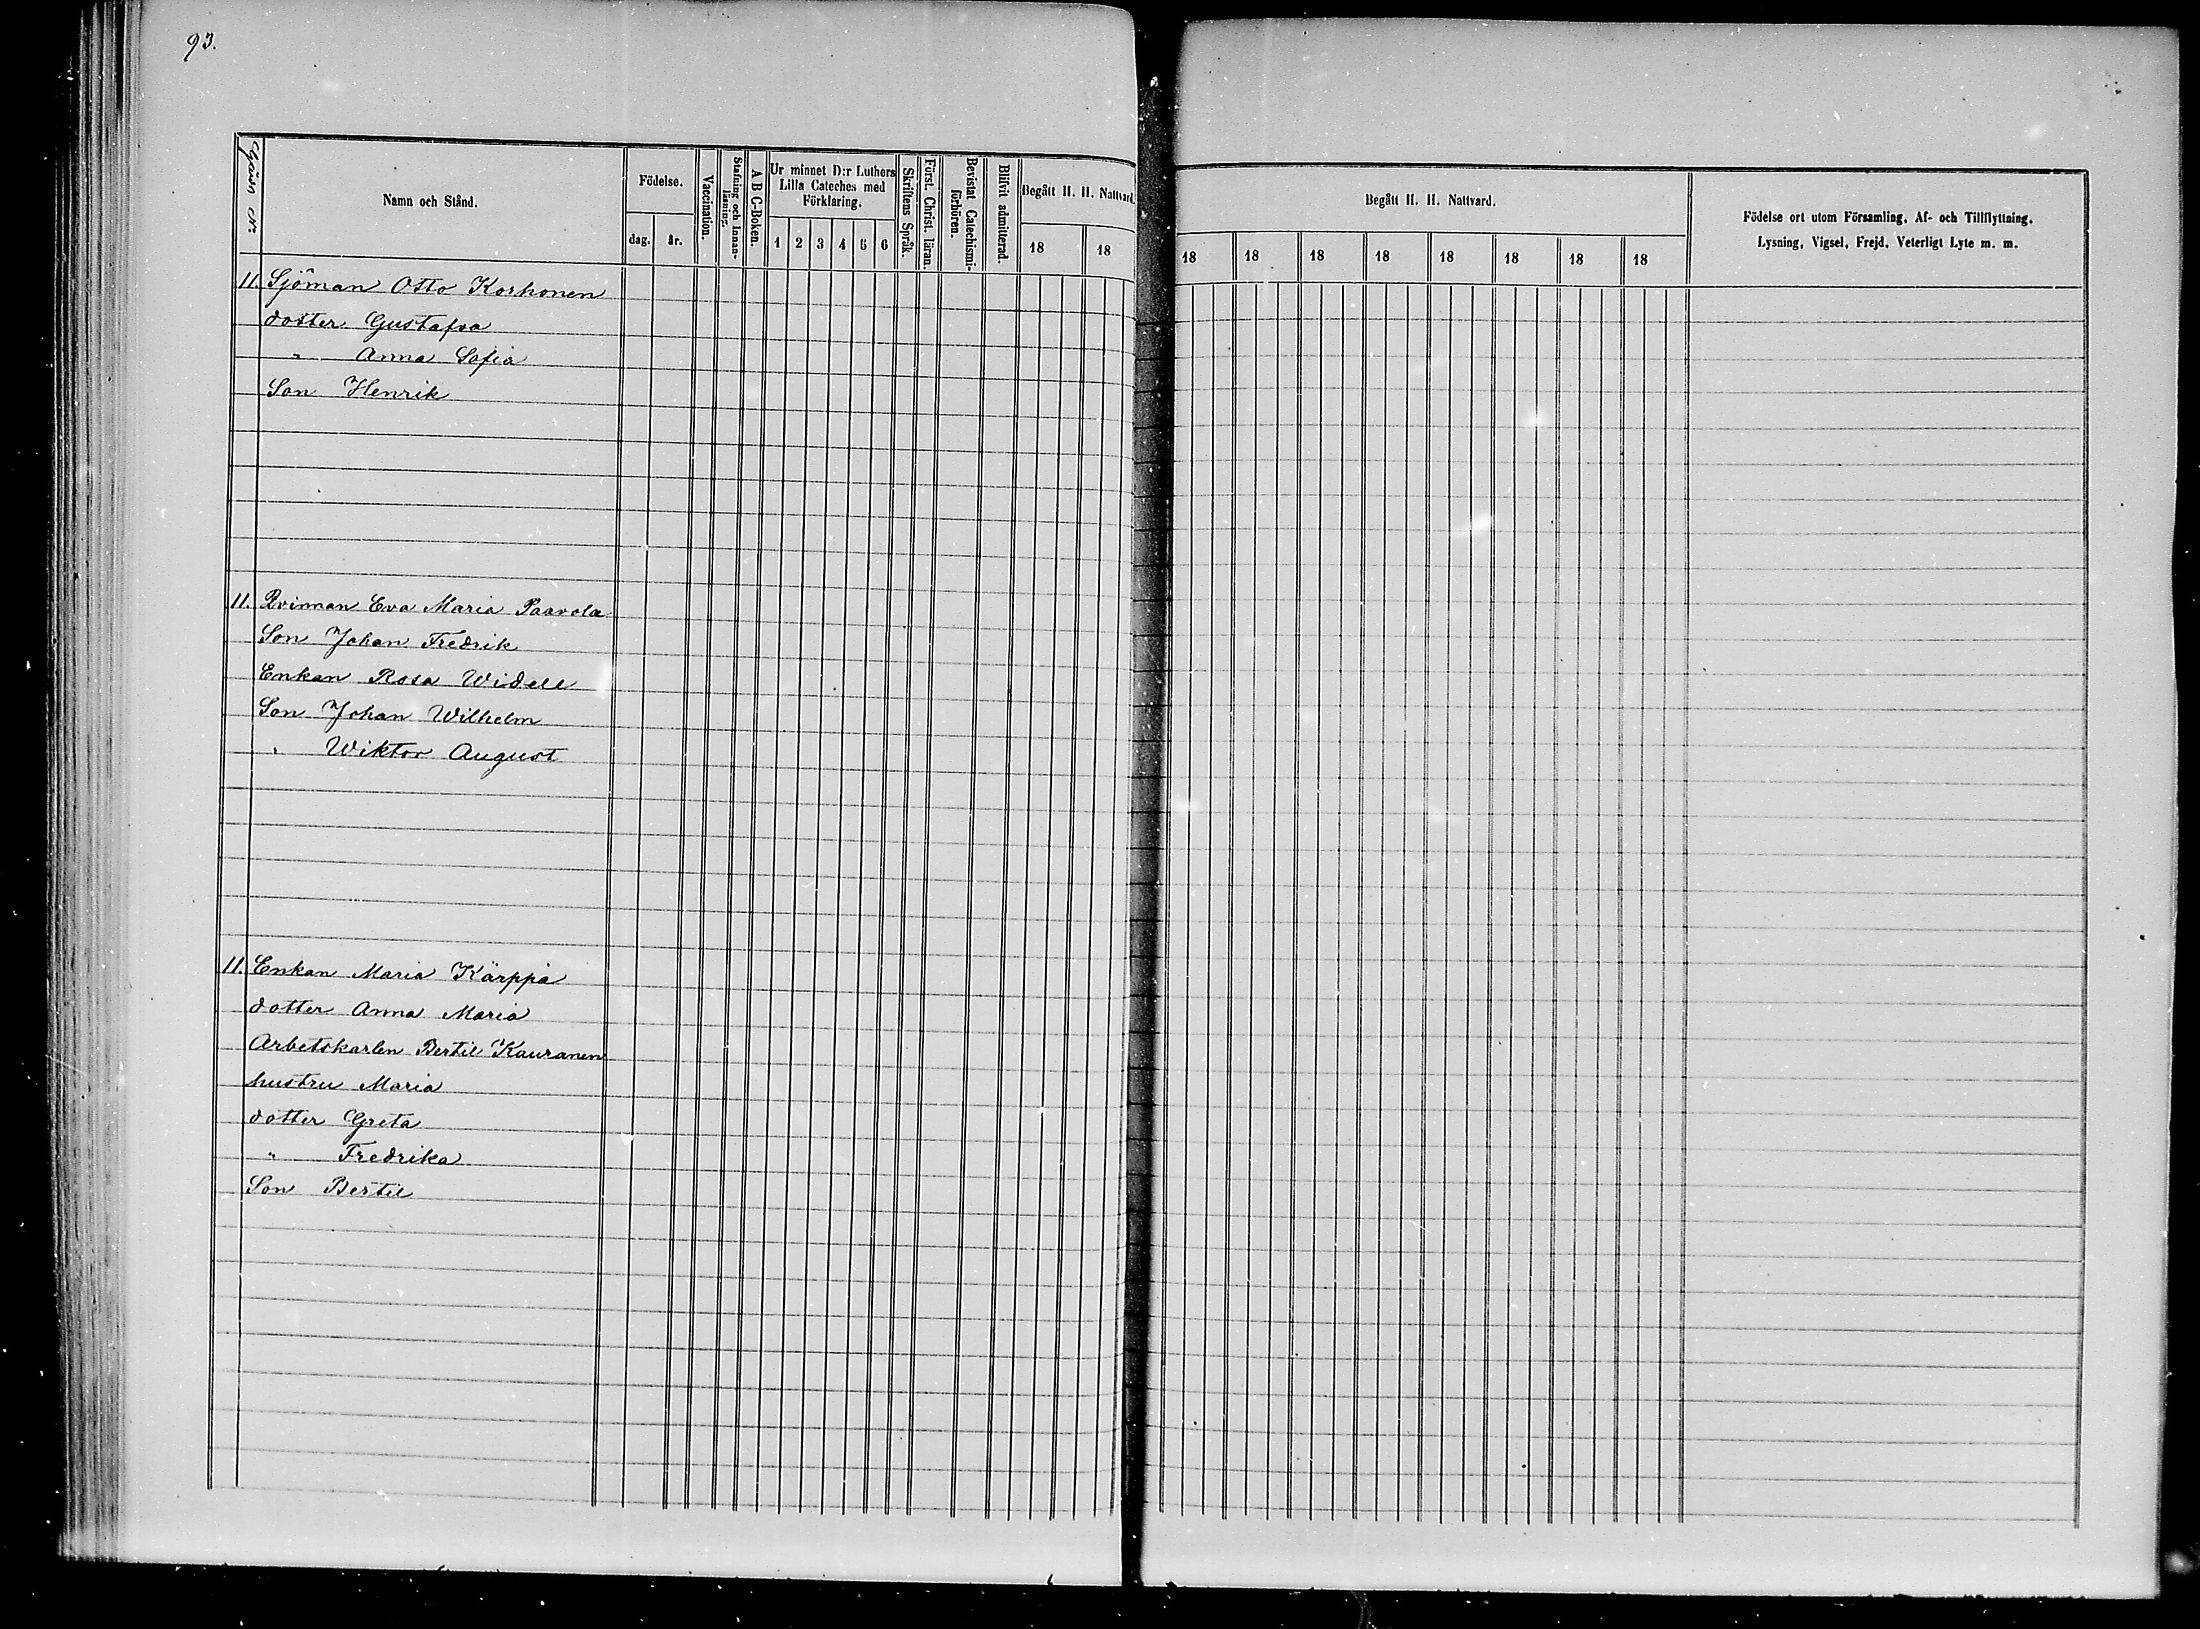 93.
Namn och Stånd.
Födelse.
dag.
år.
Vaccination.
Stafning och Innan-
läsning.
A B C-Boken.
Ur minnet D:r Luthers
Lilla Cateches med
Förklaring.
1 2 3 4 5 6
Skriftens Språk.
Först. Christ. läran.
Bevistat Catechismi-
förhören.
Blifvit admitterad.
Begått H. H. Nattvard.
18 18
Begått H. H. Nattvard.
18 18 18 18 18 18 18 18
Födelse ort utom Församling, Af- och Tillflyttning,
Lysning, Vigsel, Frejd, Veterligt Lyte m. m.
11. Sjöman Otto Korhonen
dotter Gustafva
" Anna Sofia
Son Henrik
11. Qvinnan Eva Maria Paavola
Son Johan Fredrik
Enkan Rosa Widell
Son Johan Wilhelm
" Wiktor August
11. Enkan Maria Kärppä
dotter Anna Maria
Arbetskarlen Bertil Kauranen
hustru Maria
dotter Greta
" Fredrika
Son Bertil